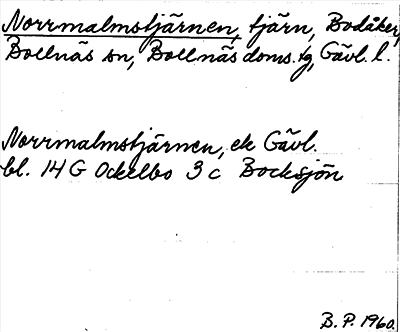 Norrmalmstjärnen, tjärn, Bodåker,
Bollnäs sn, Bollnäs doms. tg, Gävl. l.
Norrmalmstjärnen, ek Gävl.
bl. 14 G Ockelbo 3 c Bocksjön
B. P. 1960.